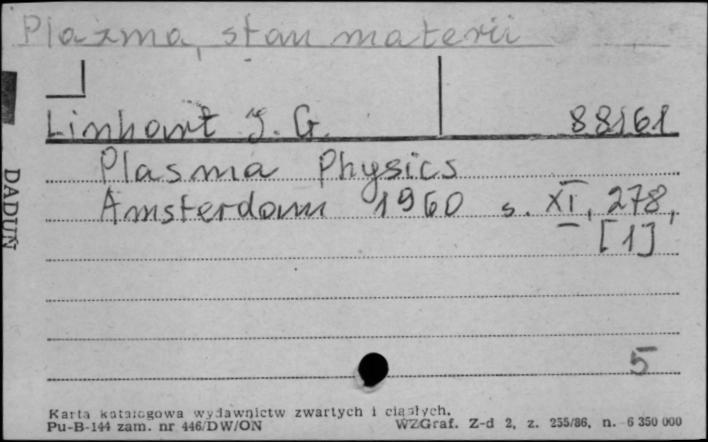 Plazma, stan materii
Linhart J. G. 88161
Plasma Physics
Amsterdam 1960 s. XI, 278,
[1]
DADUN
5
Karta katalogowa wydawnictw zwartych i ciągłych.
Pu-B-144 zam. nr 446/DW/ON WZGraf. Z-d 2, z. 255/86, n. 6 350 000